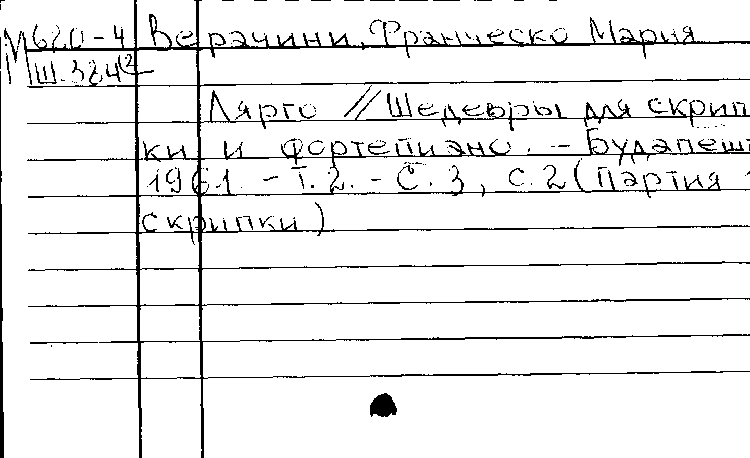 М620-4 Верачини, Франческо Мария
Ш.384(2
Лярго // Шедевры для скрип
ки и фортепиано. - Будапешт
1961. - Т.2. - С.3, с.2 (Партия
скрипки)